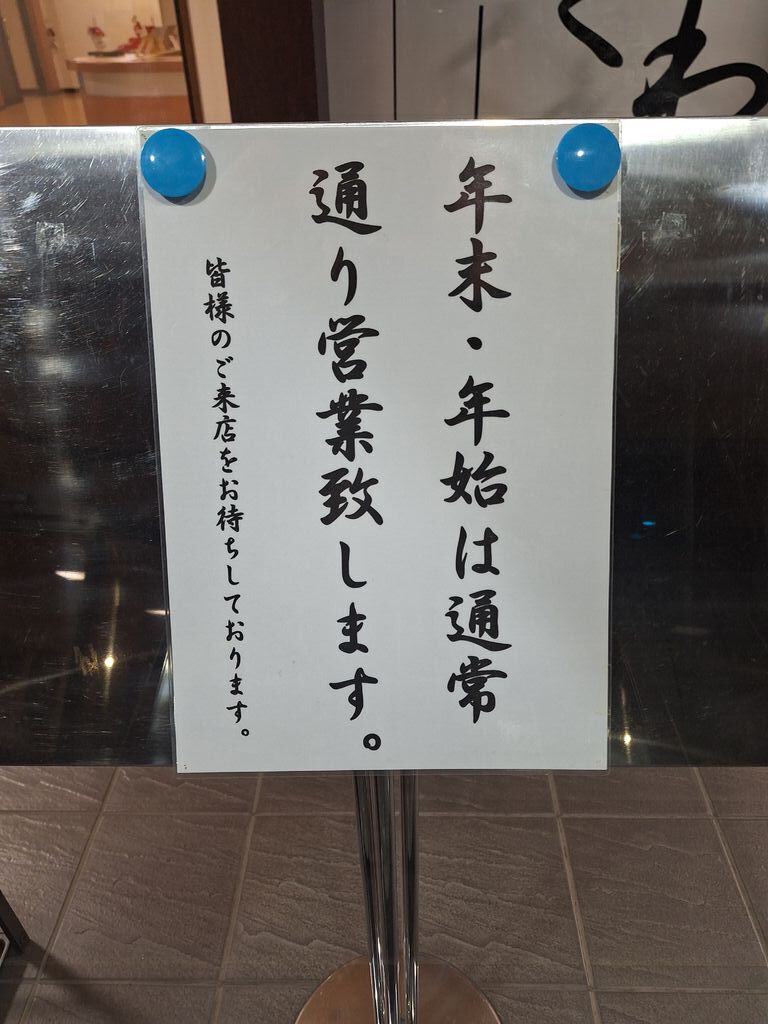 年末・年始は通常
通り営業致します。
皆様のご来店をお待ちしております。
くわ